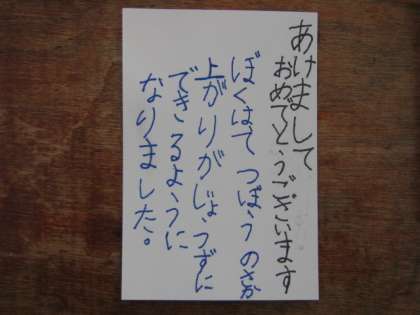 あけまして
おめでとうございます
ぼくはてつぼうのさか
上がりがじょうずに
できるように
なりました。